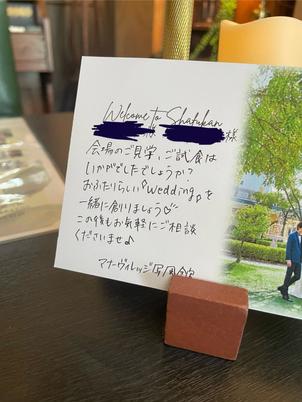 Welcome to Shafukan
様 様
会場のご見学、ご試食は
いかがでしたでしょうか？
おふたりらしい『Wedding』を
一緒に創りましょう♡
この後もお気軽にご相談
くださいませ♪
マナーヴィレッジ写風館